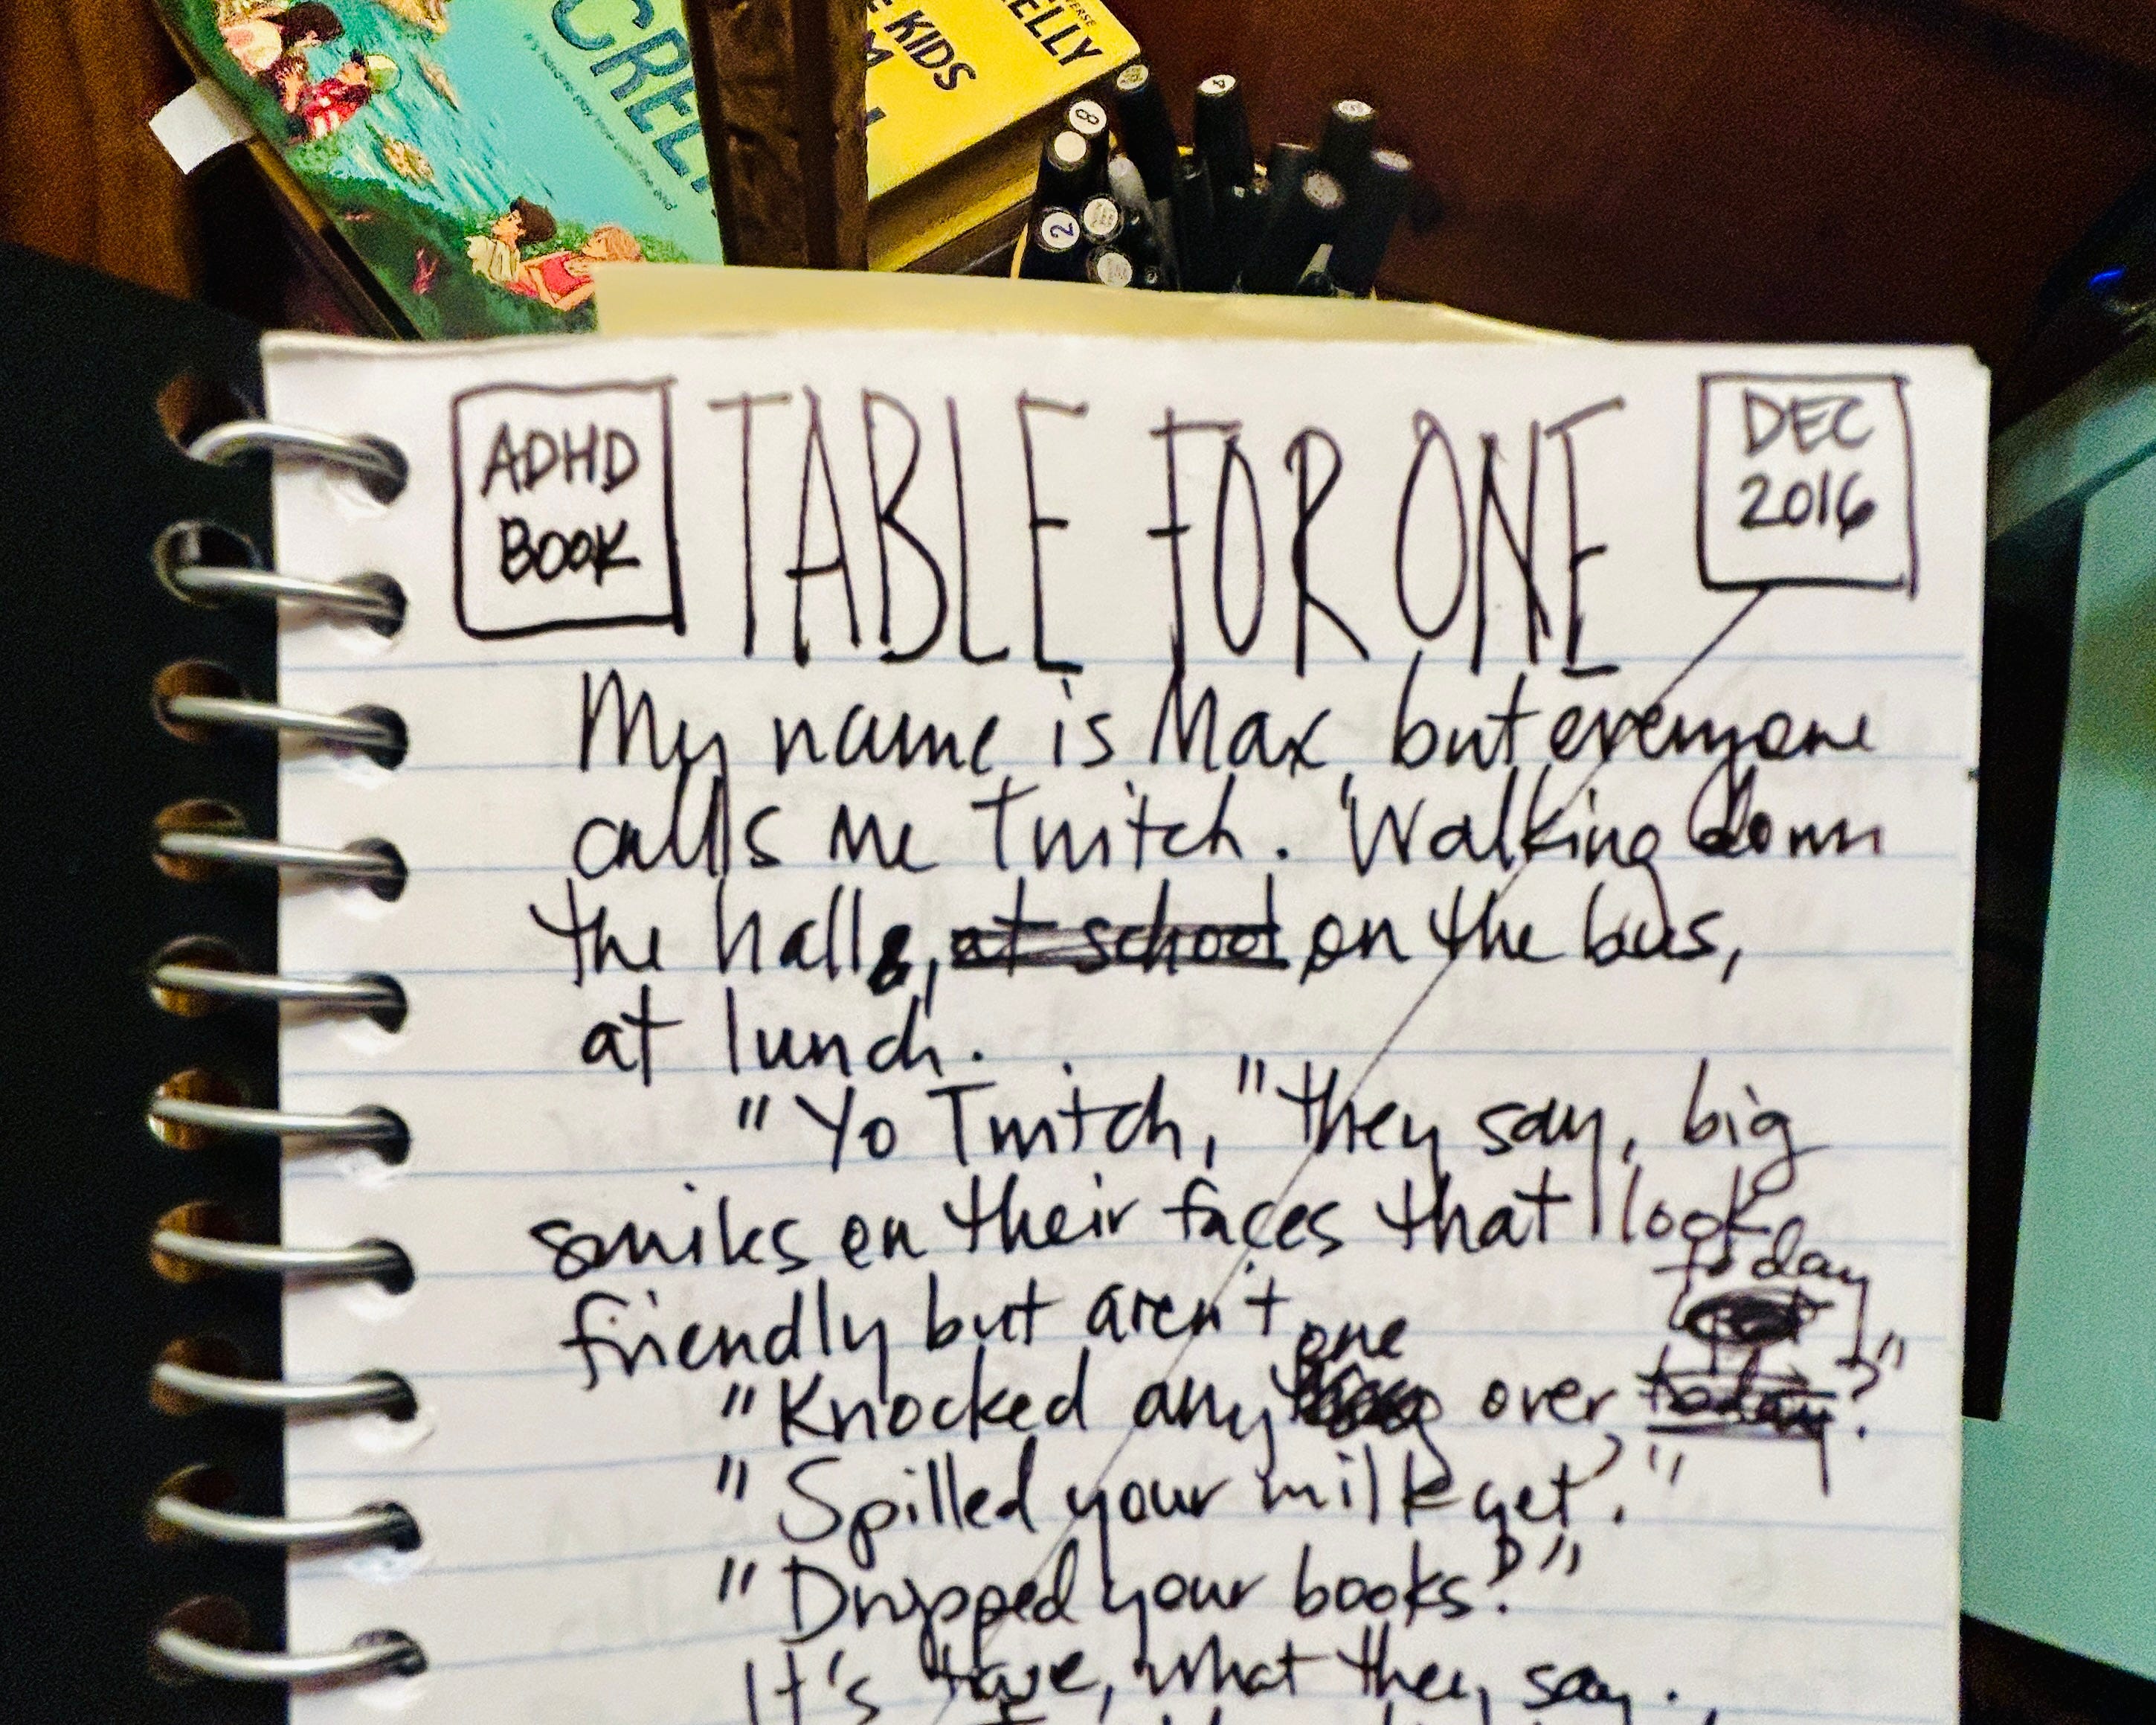 CREE
it's hard to play your cool the end
E KIDS
M
ELLY
VERSE
8
4
2
ADHD
BOOK
TABLE FOR ONE
DEC
2016
My name is Max, but everyone
calls me Twitch. Walking down
the halls, at school on the bus,
at lunch.
"Yo Twitch," they say, big
smiles on their faces that look
friendly but aren't
one
today
"Knocked any thing over today?"
"Spilled your milk yet?"
"Dropped your books?"
It's true, what they say.